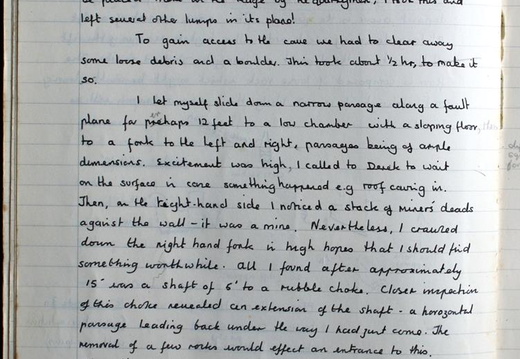 left several other lumps in its place!
To gain access to the cave we had to clear away
some loose debris and a boulder. This took about ½ hr, to make it
so.
I let myself slide down a narrow passage along a fault
plane for perhaps 12 feet to a low chamber with a sloping floor,
to a fork to the left and right, passages being of ample
dimensions. Excitement was high, I called to Derek to wait
on the surface in case something happened e.g roof caving in.
Then, on the right-hand side I noticed a stack of miners' deads
against the wall - it was a mine. Nevertheless, I crawled
down the right hand fork in high hopes that I should find
something worthwhile. All I found after approximately
15' was a shaft of 6' to a rubble choke. Closer inspection
of this choke revealed an extension of the shaft - a horozontal
passage leading back under the way I had just come. The
removal of a few rocks would effect an entrance to this,